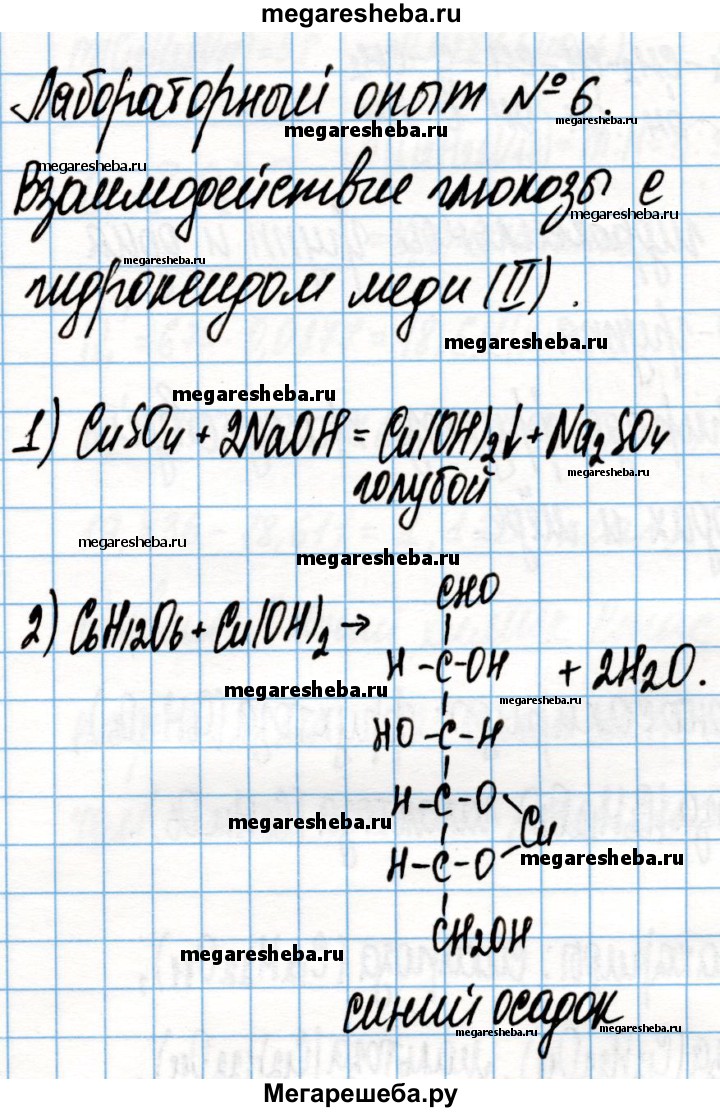 megaresheba.ru
Лабораторный опыт № 6.
megaresheba.ru
megaresheba.ru
Взаимодействие глюкозы с
megaresheba.ru
megaresheba.ru
гидроксидом меди (II).
megaresheba.ru
megaresheba.ru
1) CuSO4 + 2NaOH = Cu(OH)2↓ + Na2SO4
megaresheba.ru
голубой
megaresheba.ru
megaresheba.ru
CHO
2) C6H12O6 + Cu(OH)2 →
H - C - OH + 2H2O.
megaresheba.ru
megaresheba.ru
HO - C - H
H - C - O
megaresheba.ru
Cu
H - C - O
megaresheba.ru
CH2OH
megaresheba.ru
синий осадок
megaresheba.ru
megaresheba.ru
Мегарешеба.ру